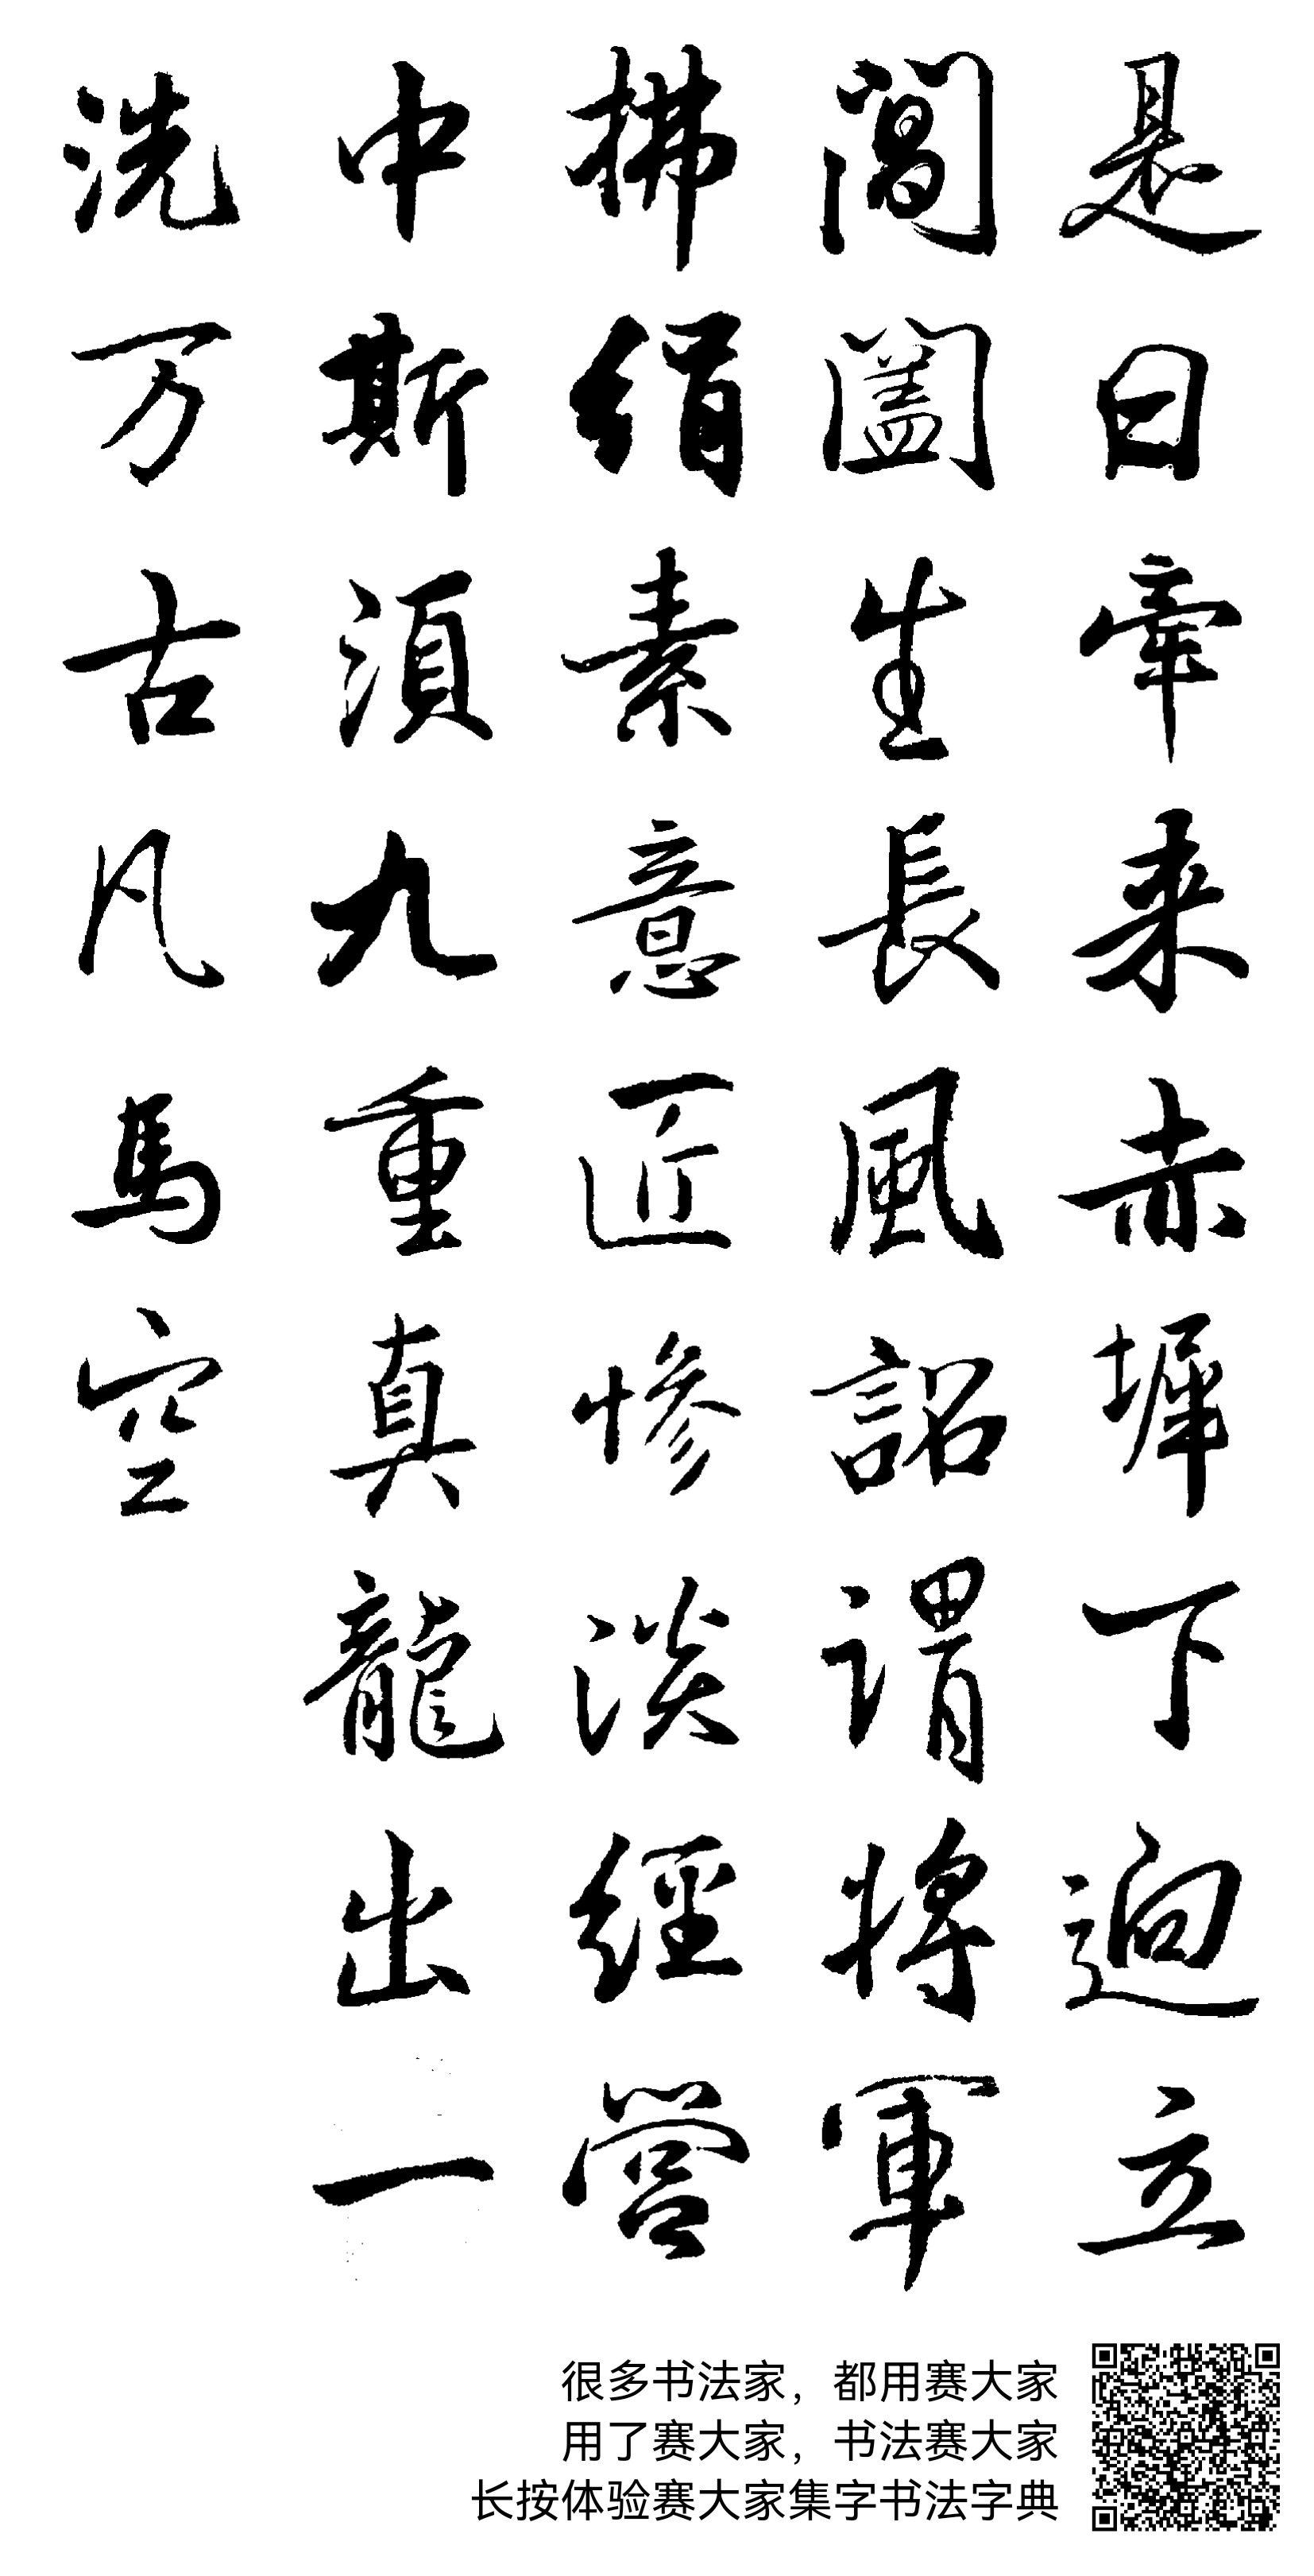 是日牵来赤墀下迥立
閶闔生長風詔謂將軍
拂絹素意匠惨淡經營
中斯須九重真龍出一
洗万古凡馬空
很多书法家，都用赛大家
用了赛大家，书法赛大家
长按体验赛大家集字书法字典